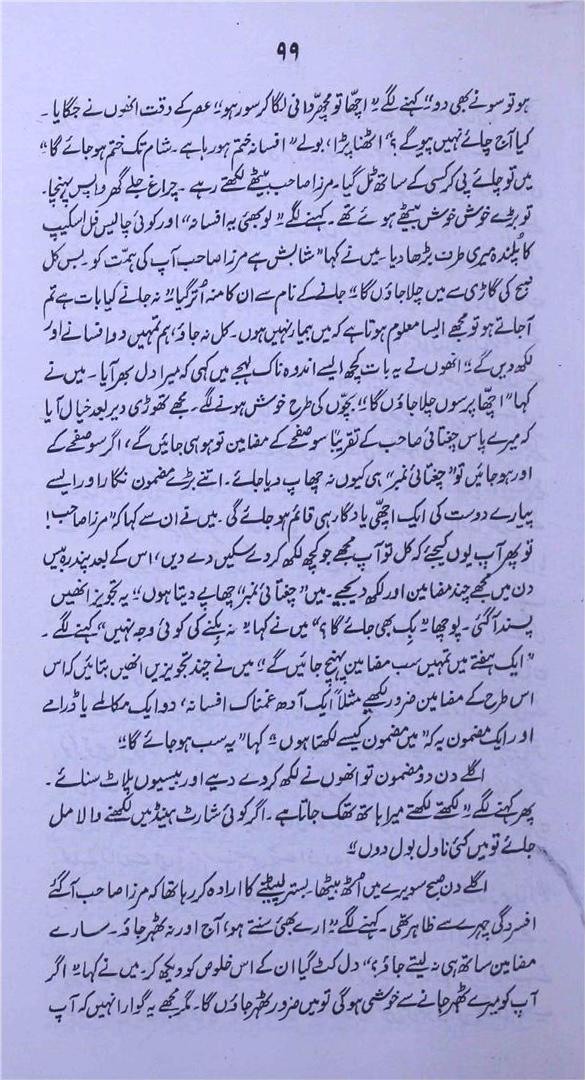 ۹۹
ہو تو سونے بھی دو" کہنے لگے "اچھا تو مچھر دانی لگا کر سو رہو" عصر کے وقت انھوں نے جگایا۔
کیا آج چائے نہیں پیو گے؟" اٹھنا پڑا، بولے "افسانہ ختم ہو رہا ہے۔ شام تک ختم ہو جائے گا"
میں تو چائے پی کر کسی کے ساتھ ٹل گیا۔ مرزا صاحب بیٹھے لکھتے رہے۔ چراغ جلے گھر واپس پہنچا۔
تو بڑے خوش خوش بیٹھے ہوئے تھے۔ کہنے لگے "لو بھئی یہ افسانہ" اور کوئی چالیس فل اسکیپ
کا پلندہ میری طرف بڑھا دیا۔ میں نے کہا "شاباش ہے مرزا صاحب آپ کی ہمت کو۔ بس کل
صبح کی گاڑی سے میں چلا جاؤں گا" جانے کے نام سے ان کا منہ اُتر گیا "نہ جانے کیا بات ہے تم
آ جاتے ہو تو مجھے ایسا معلوم ہوتا ہے کہ میں بیمار نہیں ہوں۔ کل نہ جاؤ، ہم تمہیں دو افسانے اور
لکھ دیں گے" انھوں نے یہ بات کچھ ایسے اندوہ ناک لہجے میں کہی کہ میرا دل بھر آیا۔ میں نے
کہا "اچھا پرسوں چلا جاؤں گا" بچّوں کی طرح خوش ہونے لگے۔ مجھے تھوڑی دیر بعد خیال آیا
کہ میرے پاس چغتائی صاحب کے تقریباً سو صفحے کے مضامین تو ہو ہی جائیں گے، اگر سو صفحے کے
اور ہو جائیں تو "چغتائی نمبر" ہی کیوں نہ چھاپ دیا جائے۔ اتنے بڑے مضمون نگار اور ایسے
پیارے دوست کی ایک اچھی یادگار ہی قائم ہو جائے گی۔ میں نے ان سے کہا کہ "مرزا صاحب!
تو پھر آپ یوں کیجئے کہ کل تو آپ مجھے جو کچھ لکھ کر دے سکیں دے دیں، اس کے بعد پندرہ بیس
دن میں مجھے چند مضامین اور لکھ دیجیے۔ میں "چغتائی نمبر" چھاپے دیتا ہوں" یہ تجویز انھیں
پسند آ گئی۔ پوچھا "بِک بھی جائے گا؟" میں نے کہا "نہ بکنے کی کوئی وجہ نہیں" کہنے لگے۔
"ایک ہفتے میں تمہیں سب مضامین پہنچ جائیں گے" میں نے چند تجویزیں انھیں بتائیں کہ اس
اس طرح کے مضامین ضرور لکھیے مثلاً ایک آدھ غمناک افسانہ، دو ایک مکالمے یا ڈرامے
اور ایک مضمون یہ کہ "میں مضمون کیسے لکھتا ہوں"؟ کہا "یہ سب ہو جائے گا"
اگلے دن دو مضمون تو انھوں نے لکھ کر دے دیے اور بیسیوں پلاٹ سنائے۔
پھر کہنے لگے "لکھتے لکھتے میرا ہاتھ تھک جاتا ہے۔ اگر کوئی شارٹ ہینڈ میں لکھنے والا مل
جائے تو میں کئی ناول بول دوں"
اگلے دن صبح سویرے میں اُٹھ بیٹھا۔ بستر لپیٹنے کا ارادہ کر رہا تھا کہ مرزا صاحب آ گئے
افسردگی چہرے سے ظاہر تھی۔ کہنے لگے "ارے بھئی سنتے ہو، آج اور نہ ٹھہر جاؤ۔ سارے
مضامین ساتھ ہی نہ لیتے جاؤ؟" دل کٹ گیا ان کے اس خلوص کو دیکھ کر۔ میں نے کہا "اگر
آپ کو میرے ٹھہر جانے سے خوشی ہو گی تو میں ضرور ٹھہر جاؤں گا۔ مگر مجھے یہ گوارا نہیں کہ آپ